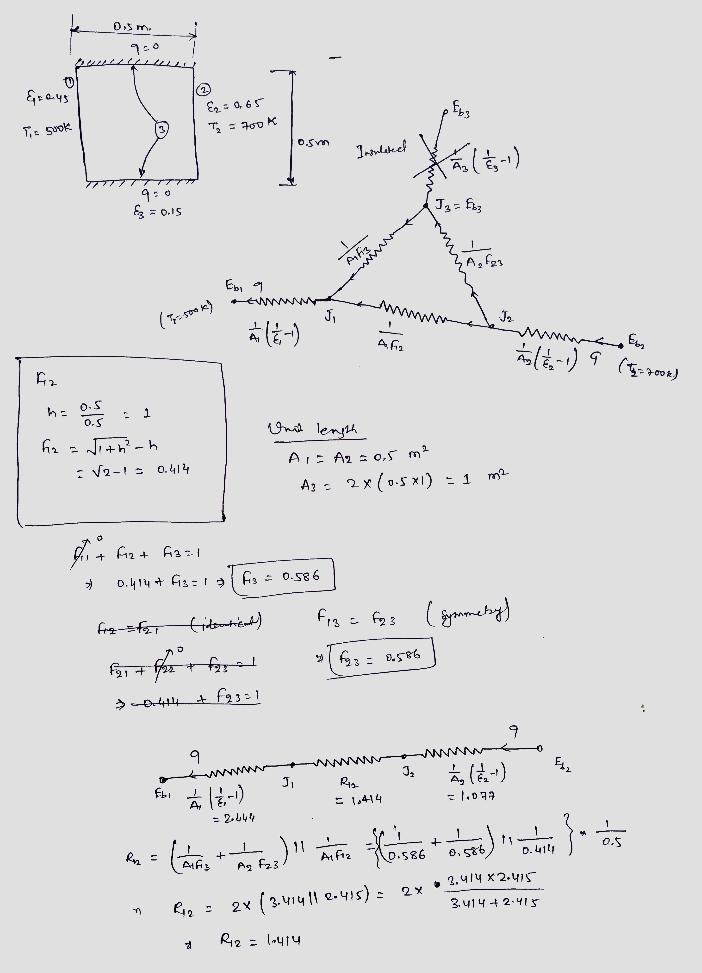 0.5m.
q=0
①
ε₁=0.45
T₁ = 500K
②
ε₂ = 0.65
T₂ = 700 K
③
0.5m
q=0
ε₃ = 0.15
Eb₃
Insulated
1/A₃ (1/ε₃ -1)
J₃ = Eb₃
1/A₁F₁₃
1/A₂F₂₃
Eb₁ q
(T₁=500K)
1/A₁ (1/ε₁ -1)
J₁
1/A₁F₁₂
J₂
1/A₂ (1/ε₂ -1) q
Eb₂
(T₂=700K)
F₁₂
h = 0.5/0.5 = 1
F₁₂ = √1+h² - h
= √2 -1 = 0.414
Unit length
A₁ = A₂ = 0.5 m²
A₃ = 2 x (0.5 x1) = 1 m²
F₁₁ ↗0 + F₁₂ + F₁₃ = 1
⇒ 0.414 + F₁₃ = 1 ⇒ F₁₃ = 0.586
F₁₂ = F₂₁ (identical)
F₂₁ + F₂₂ ↗0 + F₂₃ = 1
⇒ 0.414 + F₂₃ = 1
F₁₃ = F₂₃ (symmetry)
⇒ F₂₃ = 0.586
q
q
Eb₁
1/A₁ (1/ε₁ -1)
= 2.444
J₁
R₁₂
= 1.414
J₂
1/A₂ (1/ε₂ -1)
= 1.077
Eb₂
R₁₂ = (1/A₁F₁₃ + 1/A₂F₂₃) || 1/A₁F₁₂ = {(1/0.586 + 1/0.586) || 1/0.414} * 1/0.5
R₁₂ = 2x (3.414 || 2.415) = 2x 3.414 x 2.415 / 3.414 + 2.415
⇒ R₁₂ = 1.414